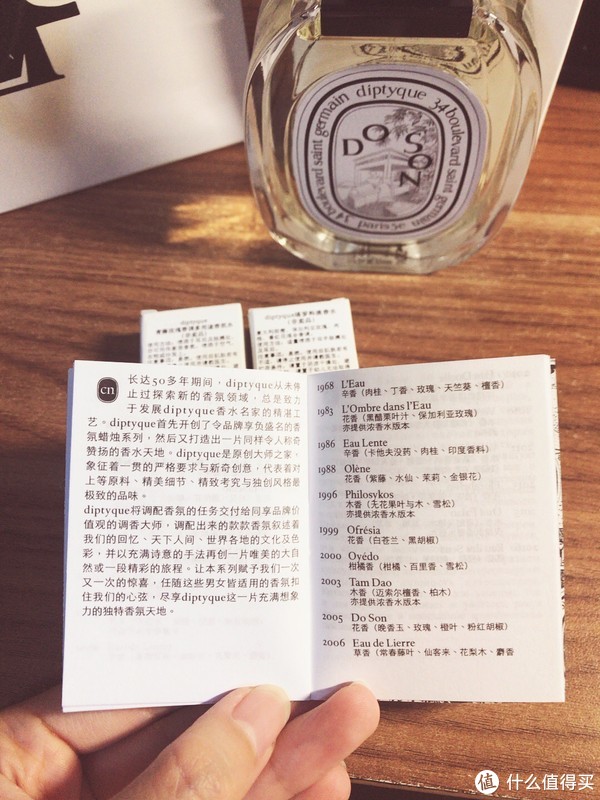 34 boulevard saint germain diptyque 34 boulevard saint germain paris 5e
DO
SON
diptyque
(非卖品)
diptyque
(非卖品)
cn
长达50多年期间，diptyque从未停
止过探索新的香氛领域，总是致力
于发展diptyque香水名家的精湛工
艺。diptyque首先开创了令品牌享负盛名的香
氛蜡烛系列，然后又打造出一片同样令人称奇
赞扬的香水天地。diptyque是原创大师之家，
象征着一贯的严格要求与新奇创意，代表着对
上等原料、精美细节、精致考究与独创风格最
极致的品味。
diptyque将调配香氛的任务交付给同享品牌价
值观的调香大师，调配出来的款款香氛叙述着
我们的回忆、天下人间、世界各地的文化及色
彩，并以充满诗意的手法再创一片唯美的大自
然或一段精彩的旅程。让本系列赋予我们一次
又一次的惊喜，任随这些男女皆适用的香氛扣
住我们的心弦，尽享diptyque这一片充满想象
力的独特香氛天地。
1968 L'Eau
辛香（肉桂、丁香、玫瑰、天竺葵、檀香）
1983 L'Ombre dans l'Eau
花香（黑醋栗叶汁、保加利亚玫瑰）
亦提供浓香水版本
1986 Eau Lente
辛香（卡他夫没药、肉桂、印度香料）
1988 Olène
花香（紫藤、水仙、茉莉、金银花）
1996 Philosykos
木香（无花果叶与木、雪松）
亦提供浓香水版本
1999 Ofrésia
花香（白苍兰、黑胡椒）
2000 Oyédo
柑橘香（柑橘、百里香、雪松）
2003 Tam Dao
木香（迈索尔檀香、柏木）
亦提供浓香水版本
2005 Do Son
花香（晚香玉、玫瑰、橙叶、粉红胡椒）
2006 Eau de Lierre
草香（常春藤叶、仙客来、花梨木、麝香
值 什么值得买